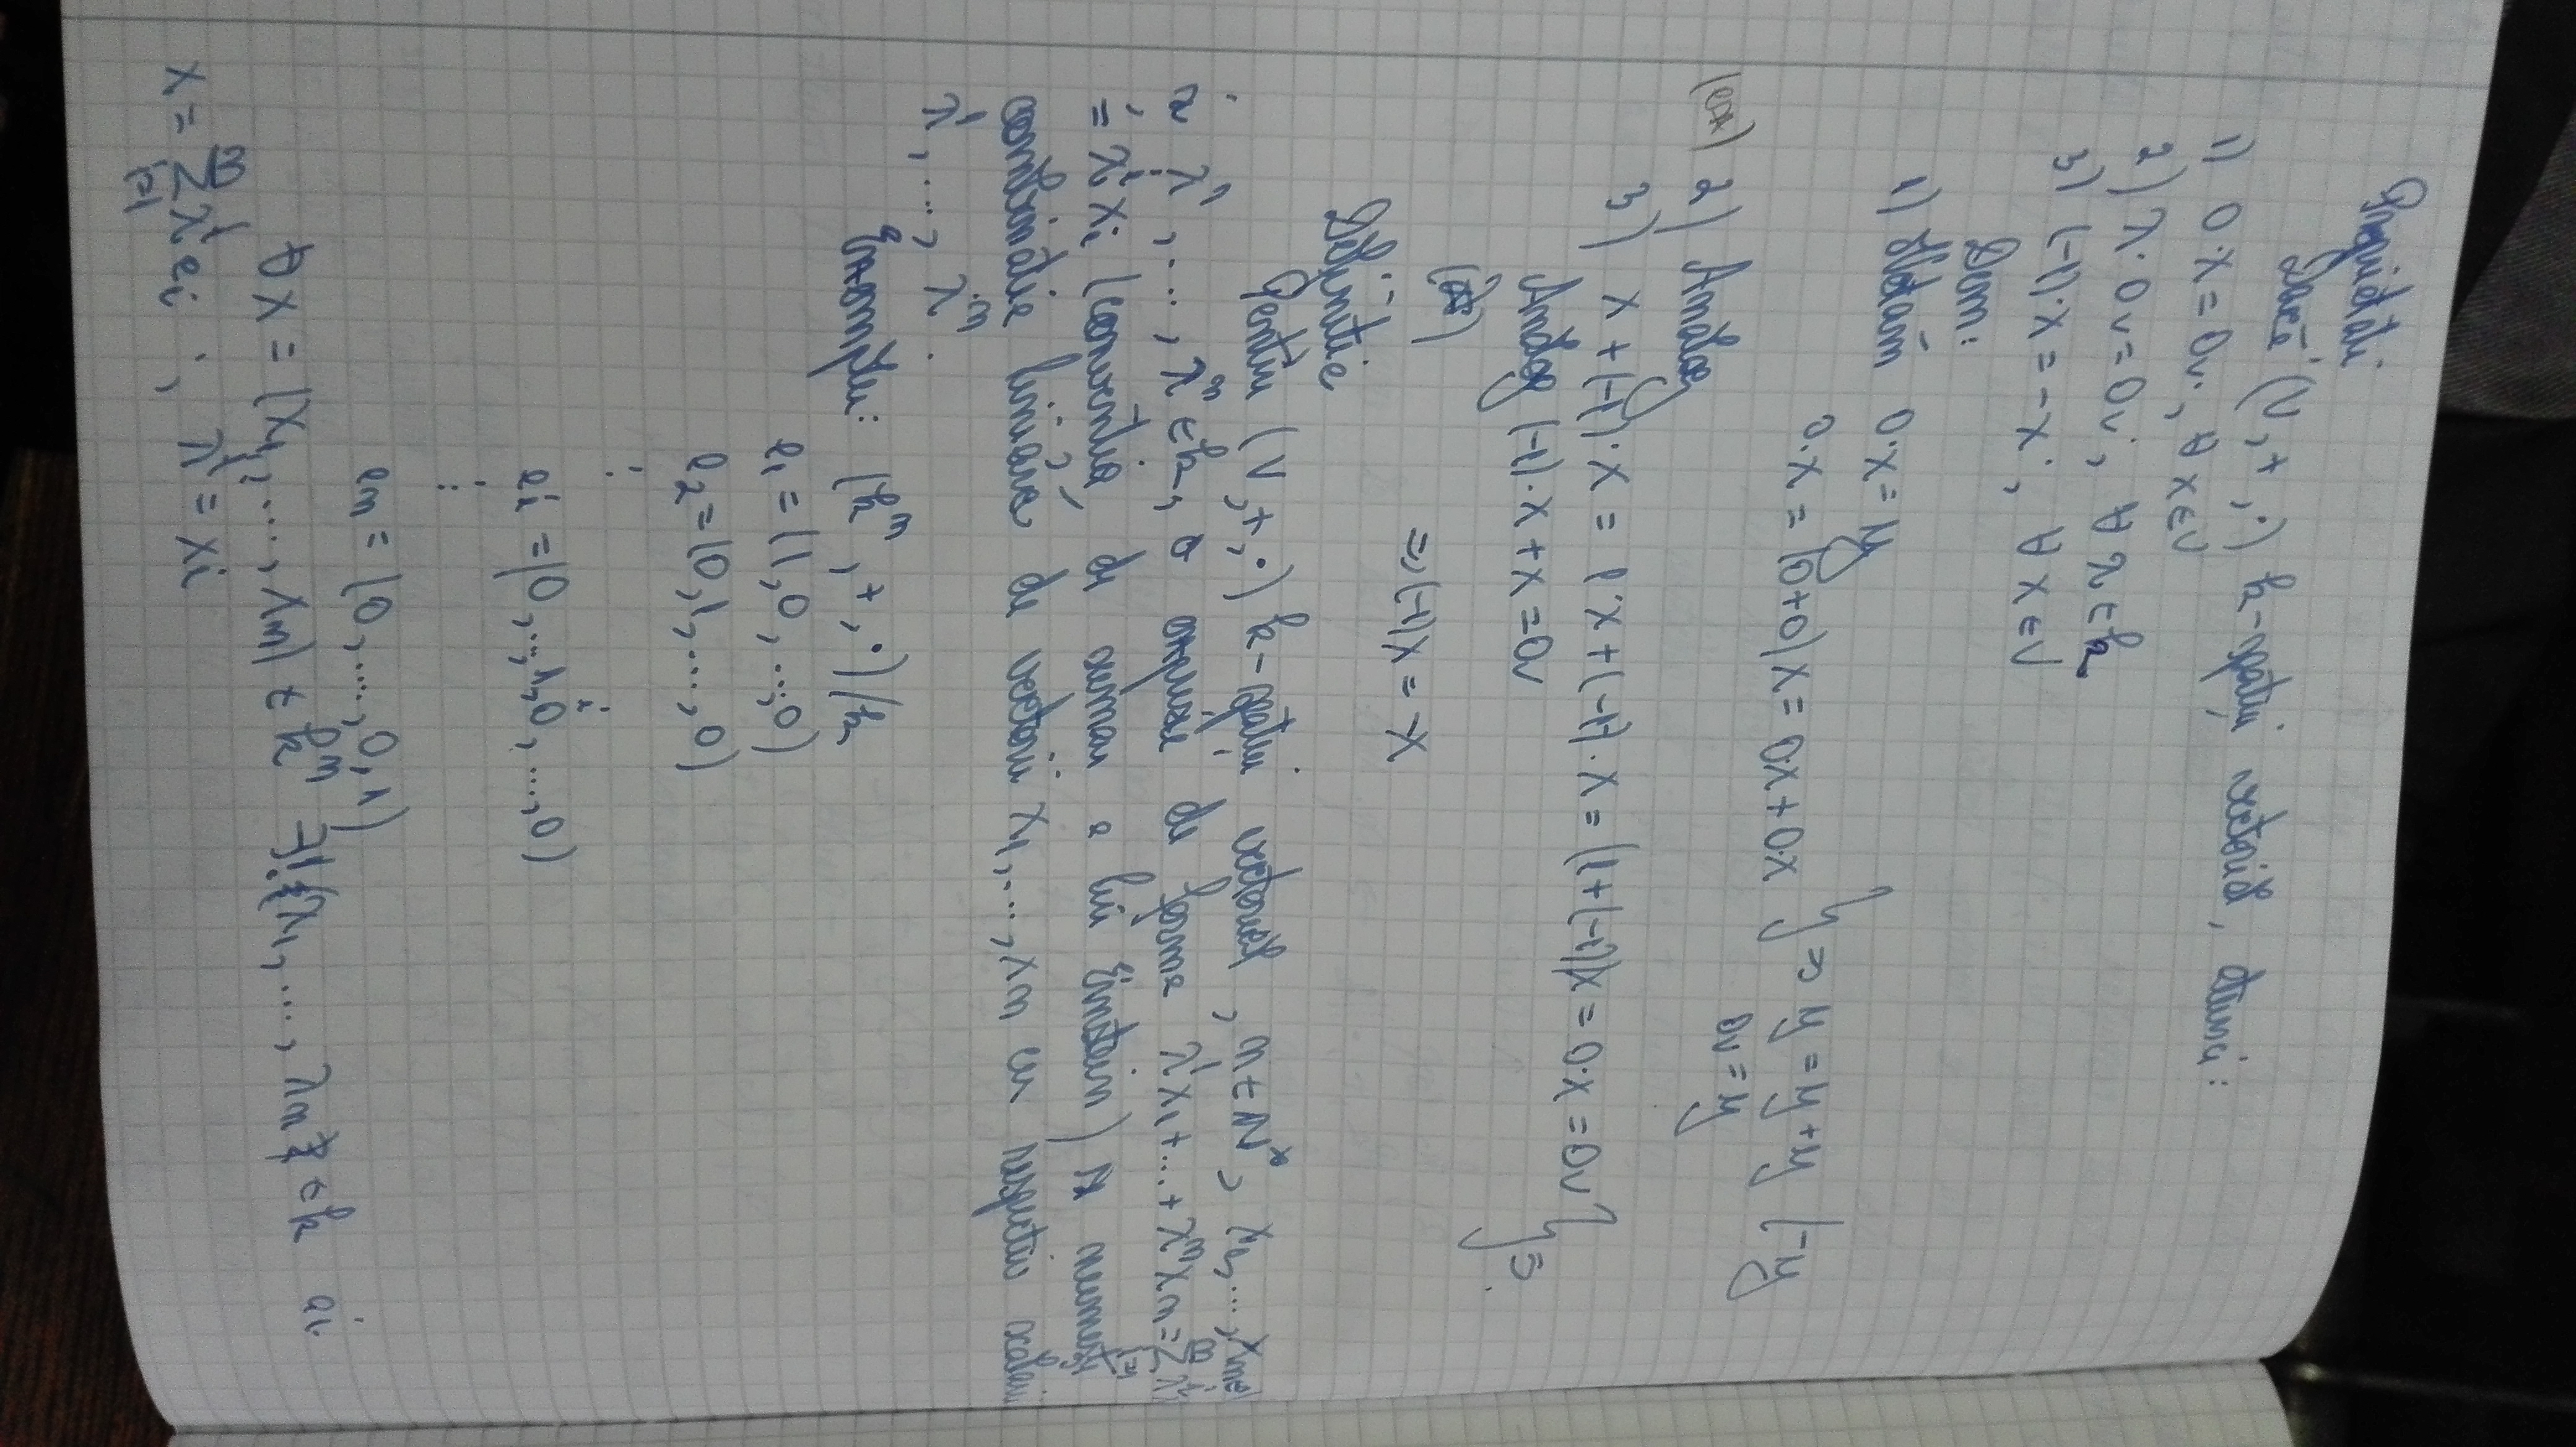 Proprietăți
Dacă (V,+,·) k-spațiu vectorial, atunci:
1) 0·x = 0v, ∀ x∈V
2) λ·0v = 0v, ∀ λ∈k
3) (-1)·x = -x, ∀ x∈V
Dem:
1) Notăm 0·x = y
0·x = (0+0)x = 0x + 0·x } => y = y+y |-y
0v = y
(ex) 2) Analog
3) x + (-1)·x = 1·x + (-1)·x = (1+(-1))x = 0·x = 0v } =>
Analog (-1)·x + x = 0v
=> (-1)x = -x
Definiție
Pentru (V,+,·) k-spațiu vectorial, n∈N*, x1,...,xn∈V
și λ¹,...,λⁿ∈k, o expresie de forma λ¹x1+...+λⁿxn = Σ λⁱ
= λⁱxi (convenția de sumare a lui Einstein) se numește
combinație liniară de vectorii x1,...,xn cu respectiv scalarii
λ¹,...,λⁿ.
Exemplu: (kⁿ,+,·)/k
e1 = (1,0,...,0)
e2 = (0,1,...,0)
⋮
ei = (0,...,1,0,...,0)
⋮
en = (0,...,0,1)
∀ x = (x1,...,xn) ∈ kⁿ ∃! λ1,...,λn ∈ k aî.
x = Σ λⁱei ; λⁱ = xi